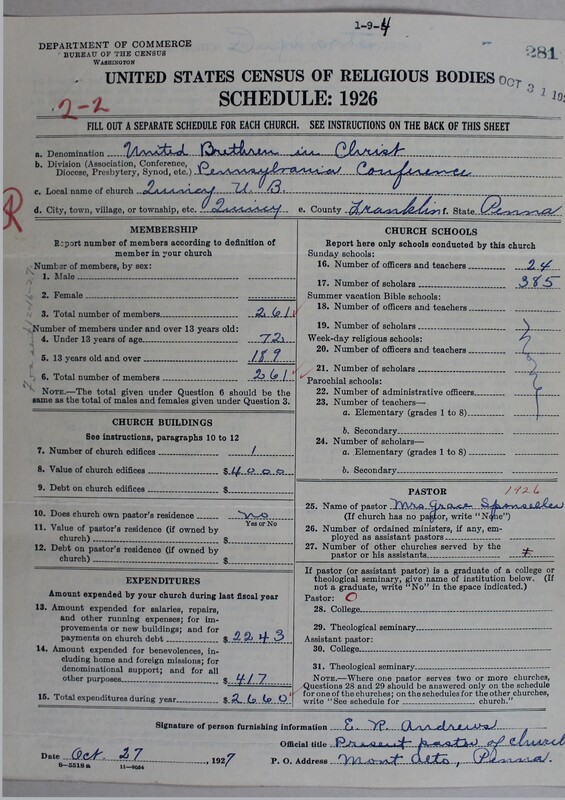 1-9-4
281
DEPARTMENT OF COMMERCE
BUREAU OF THE CENSUS
WASHINGTON
UNITED STATES CENSUS OF RELIGIOUS BODIES
OCT 31 19
SCHEDULE: 1926
2-2
FILL OUT A SEPARATE SCHEDULE FOR EACH CHURCH. SEE INSTRUCTIONS ON THE BACK OF THIS SHEET
a. Denomination United Brethren in Christ
b. Division (Association, Conference, Diocese, Presbytery, Synod, etc.) Pennsylvania Conference
c. Local name of church Quincy U. B.
R
d. City, town, village, or township, etc. Quincy e. County Franklin f. State Penna
MEMBERSHIP
Report number of members according to definition of
member in your church
Number of members, by sex:
1. Male
2. Female
3. Total number of members 261
Number of members under and over 13 years old:
4. Under 13 years of age 72
5. 13 years old and over 189
6. Total number of members 261
NOTE.—The total given under Question 6 should be
same as the total of males and females given under Question 3.
CHURCH BUILDINGS
See instructions, paragraphs 10 to 12
7. Number of church edifices 1
8. Value of church edifices $4000
9. Debt on church edifices $
10. Does church own pastor's residence No
Yes or No
11. Value of pastor's residence (if owned by
church) $
12. Debt on pastor's residence (if owned by
church) $
EXPENDITURES
Amount expended by your church during last fiscal year
13. Amount expended for salaries, repairs,
and other running expenses; for im-
provements or new buildings; and for
payments on church debt $2243
14. Amount expended for benevolences, in-
cluding home and foreign missions; for
denominational support; and for all
other purposes $417
15. Total expenditures during year $2660
CHURCH SCHOOLS
Report here only schools conducted by this church
Sunday schools:
16. Number of officers and teachers 24
17. Number of scholars 385
Summer vacation Bible schools:
18. Number of officers and teachers
19. Number of scholars
Week-day religious schools:
20. Number of officers and teachers
21. Number of scholars
None
Parochial schools:
22. Number of administrative officers
23. Number of teachers—
a. Elementary (grades 1 to 8)
b. Secondary
24. Number of scholars—
a. Elementary (grades 1 to 8)
b. Secondary
PASTOR
1926
25. Name of pastor Mrs Grace Sponseller
(If church has no pastor, write "None")
26. Number of ordained ministers, if any, em-
ployed as assistant pastors
27. Number of other churches served by the
pastor or his assistants
If pastor (or assistant pastor) is a graduate of a college or
theological seminary, give name of institution below. (If
not a graduate, write "No" in the space indicated.)
Pastor: O
28. College
29. Theological seminary
Assistant pastor:
30. College
31. Theological seminary
NOTE.—Where one pastor serves two or more churches,
Questions 28 and 29 should be answered only on the schedule
for one of the churches; on the schedules for the other churches,
write "See schedule for church."
Signature of person furnishing information E. R. Andrews
Official title Present pastor of church
Date Oct. 27, 1927 P. O. Address Mont Alto, Penna.
11—9054